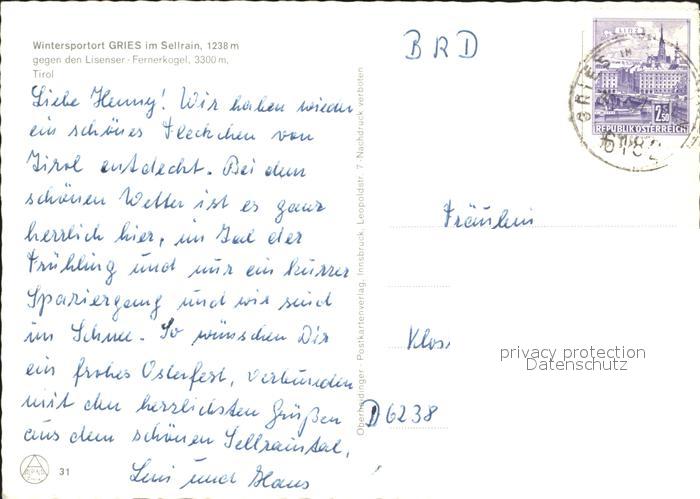 Wintersportort GRIES im Sellrain, 1238 m
gegen den Lisenser-Fernerkogel, 3300 m,
Tirol
Liebe Henny! Wir haben wieder
ein schönes Fleckchen von
Tirol entdeckt. Bei dem
schönen Wetter ist es ganz
herrlich hier, im Tal der
Frühling und nur ein kurzer
Spaziergang und wir sind
im Schnee. So wünschen Dir
ein frohes Osterfest, verbunden
mit den herzlichsten Grüßen
aus dem schönen Sellraintal,
Leni und Hans
31
Oberhaidinger-Postkartenverlag, Innsbruck, Leopoldstr. 7 · Nachdruck verboten
BRD
LINZ
2.50
REPUBLIK ÖSTERREICH
GRIES
6182
Fräulein
Klos
privacy protection
Datenschutz
D 6238